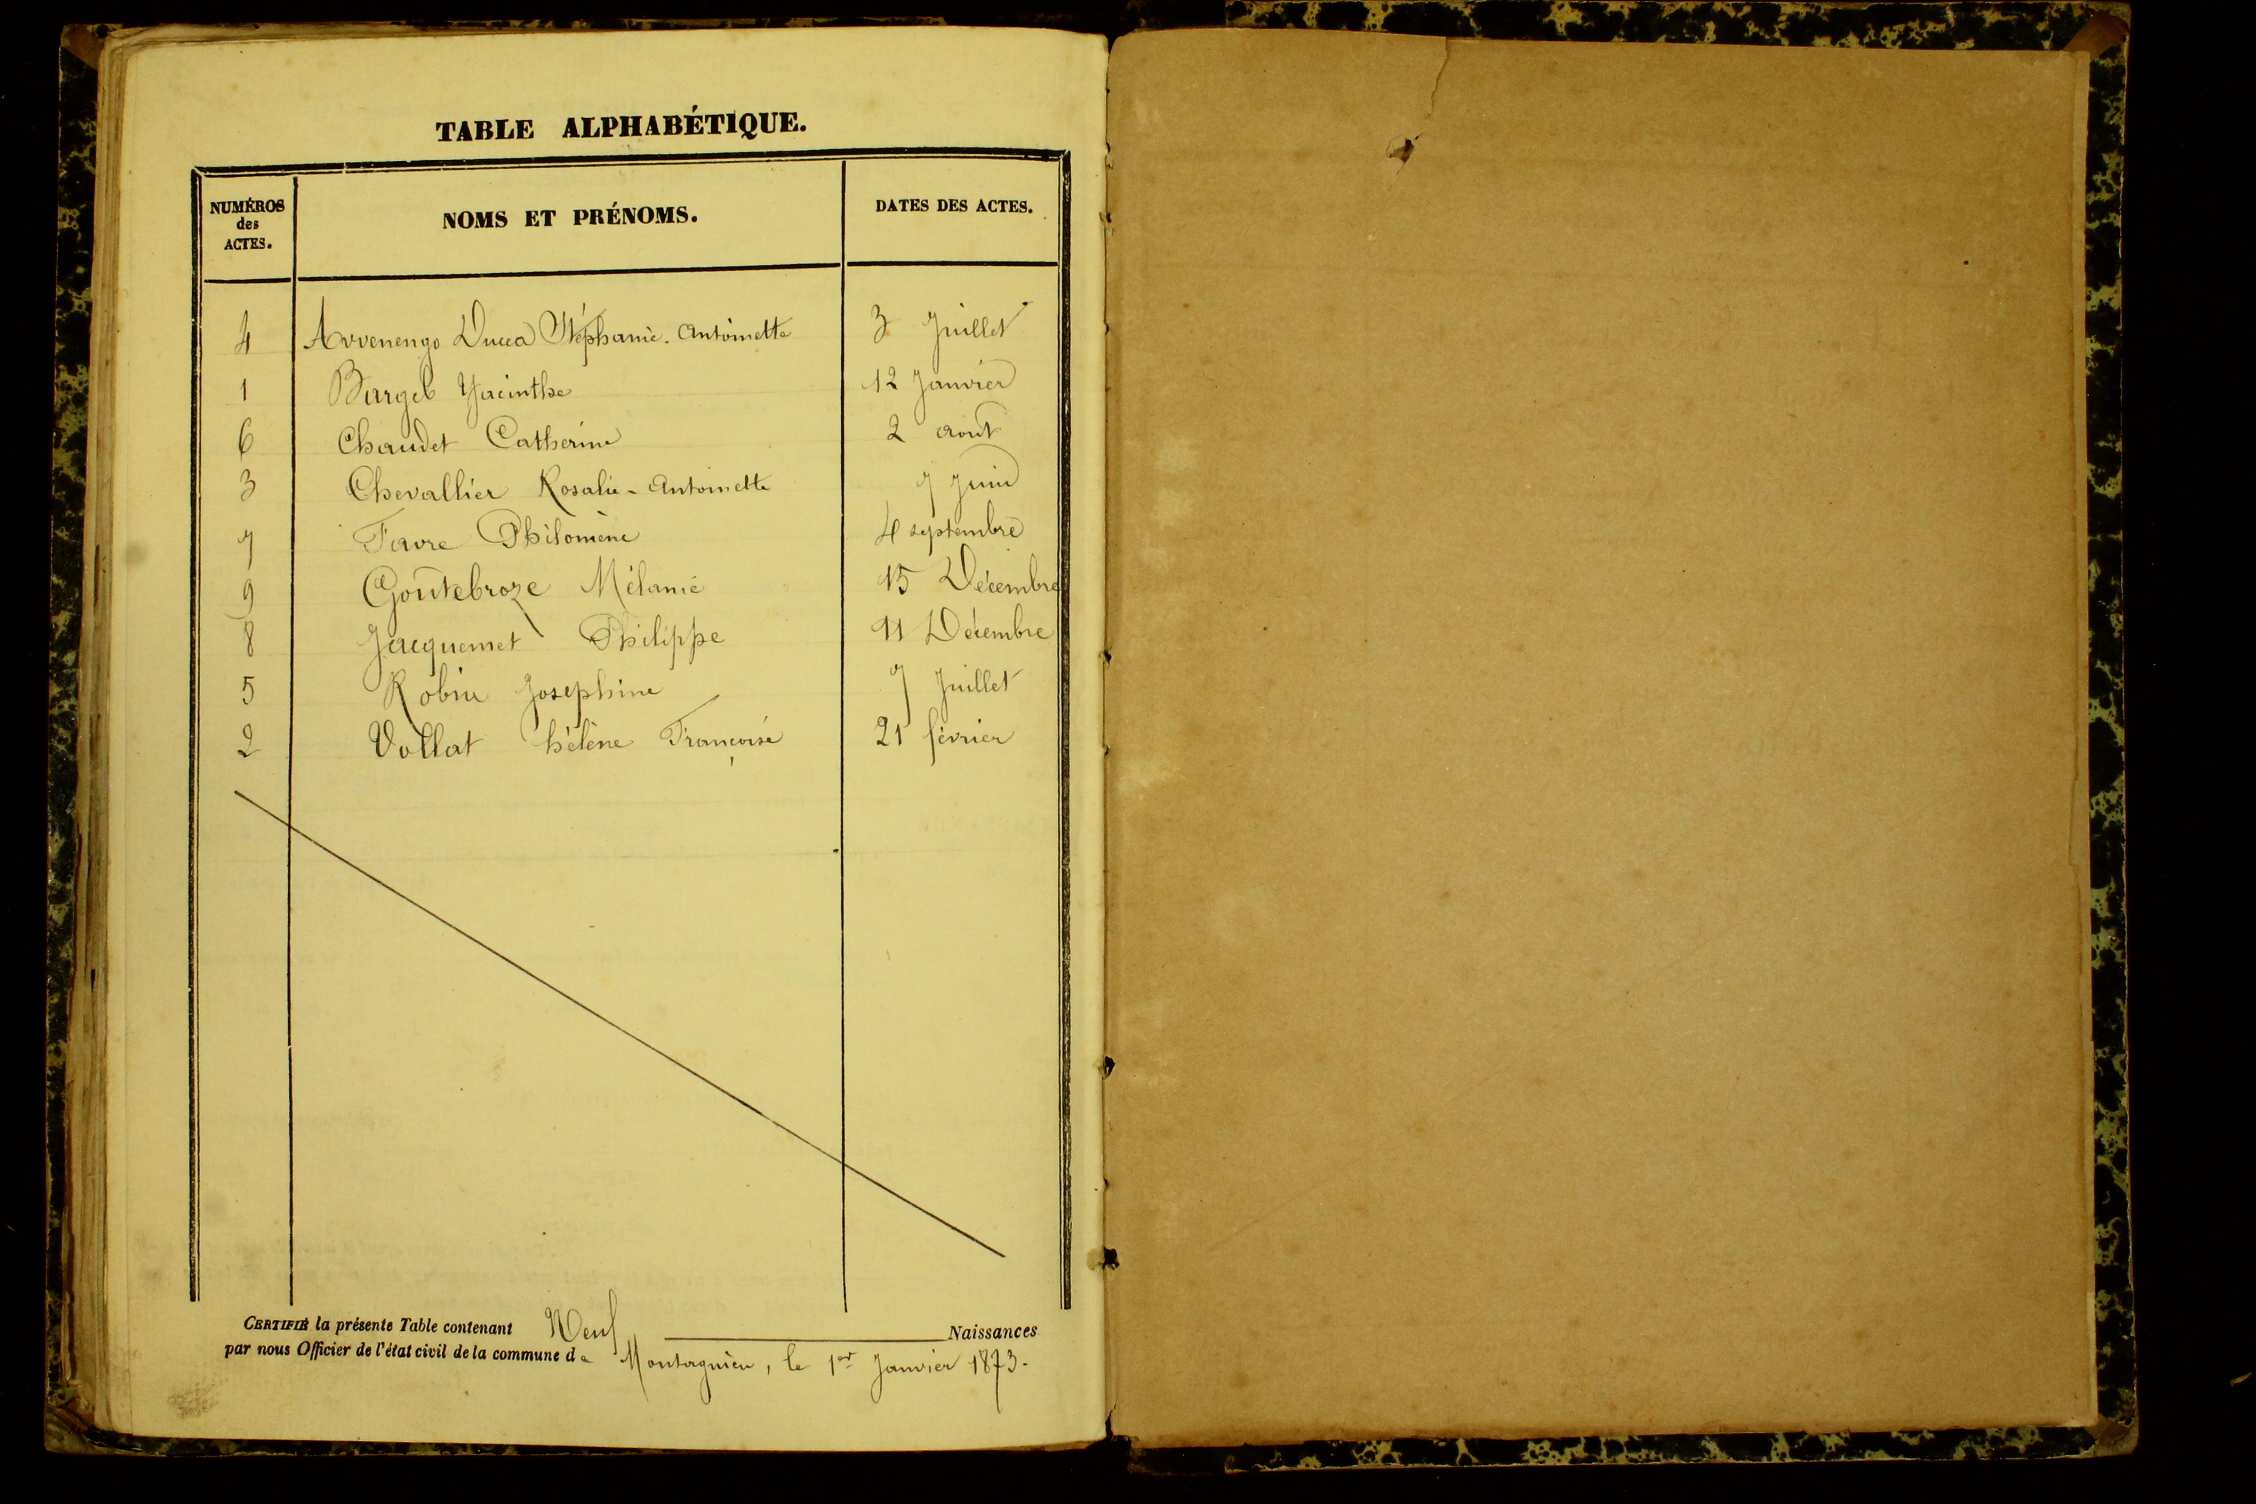 TABLE ALPHABÉTIQUE.
NUMÉROS
des
ACTES.
NOMS ET PRÉNOMS.
DATES DES ACTES.
4 Avvenengo Ducca Stéphanie. Antoinette 3 Juillet
1 Burgel Yacinthe 12 Janvier
6 Chaudet Catherine 2 aout
3 Chevallier Rosalie - Antoinette 7 Juin
7 Favre Philomène 4 septembre
9 Goutebroze Mélanie 15 Décembre
8 Jacquemet Philippe 11 Décembre
5 Robin Josephine 7 Juillet
2 Vollat hélène Françoise 21 février
CERTIFIÉ la présente Table contenant Neuf Naissances
par nous Officier de l'état civil de la commune de Montagnieu, le 1er Janvier 1873.